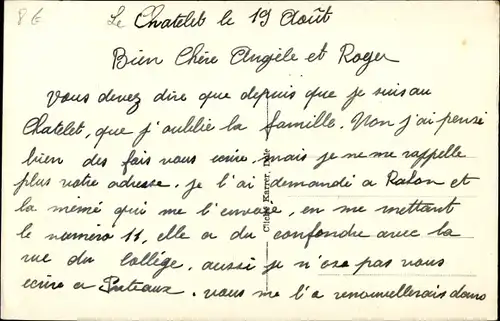 8 €
Le Chatelet le 19 Août
Bien Chère Angèle et Roger
Vous devez dire que depuis que je suis au
Chatelet, que j'oublie la famille. Non j'ai pensé
bien des fois vous ecrire, mais je ne me rappelle
plus votre adresse. je l'ai demandé a et
la mémé qui me l'envoie, en me mettant
le numéro 11, elle a du confondre avec la
rue du Collège, aussi je n'ose pas vous
ecrire a Puteaux. vous me l'a renouvellerais dans
Cliché Karrer, Dole